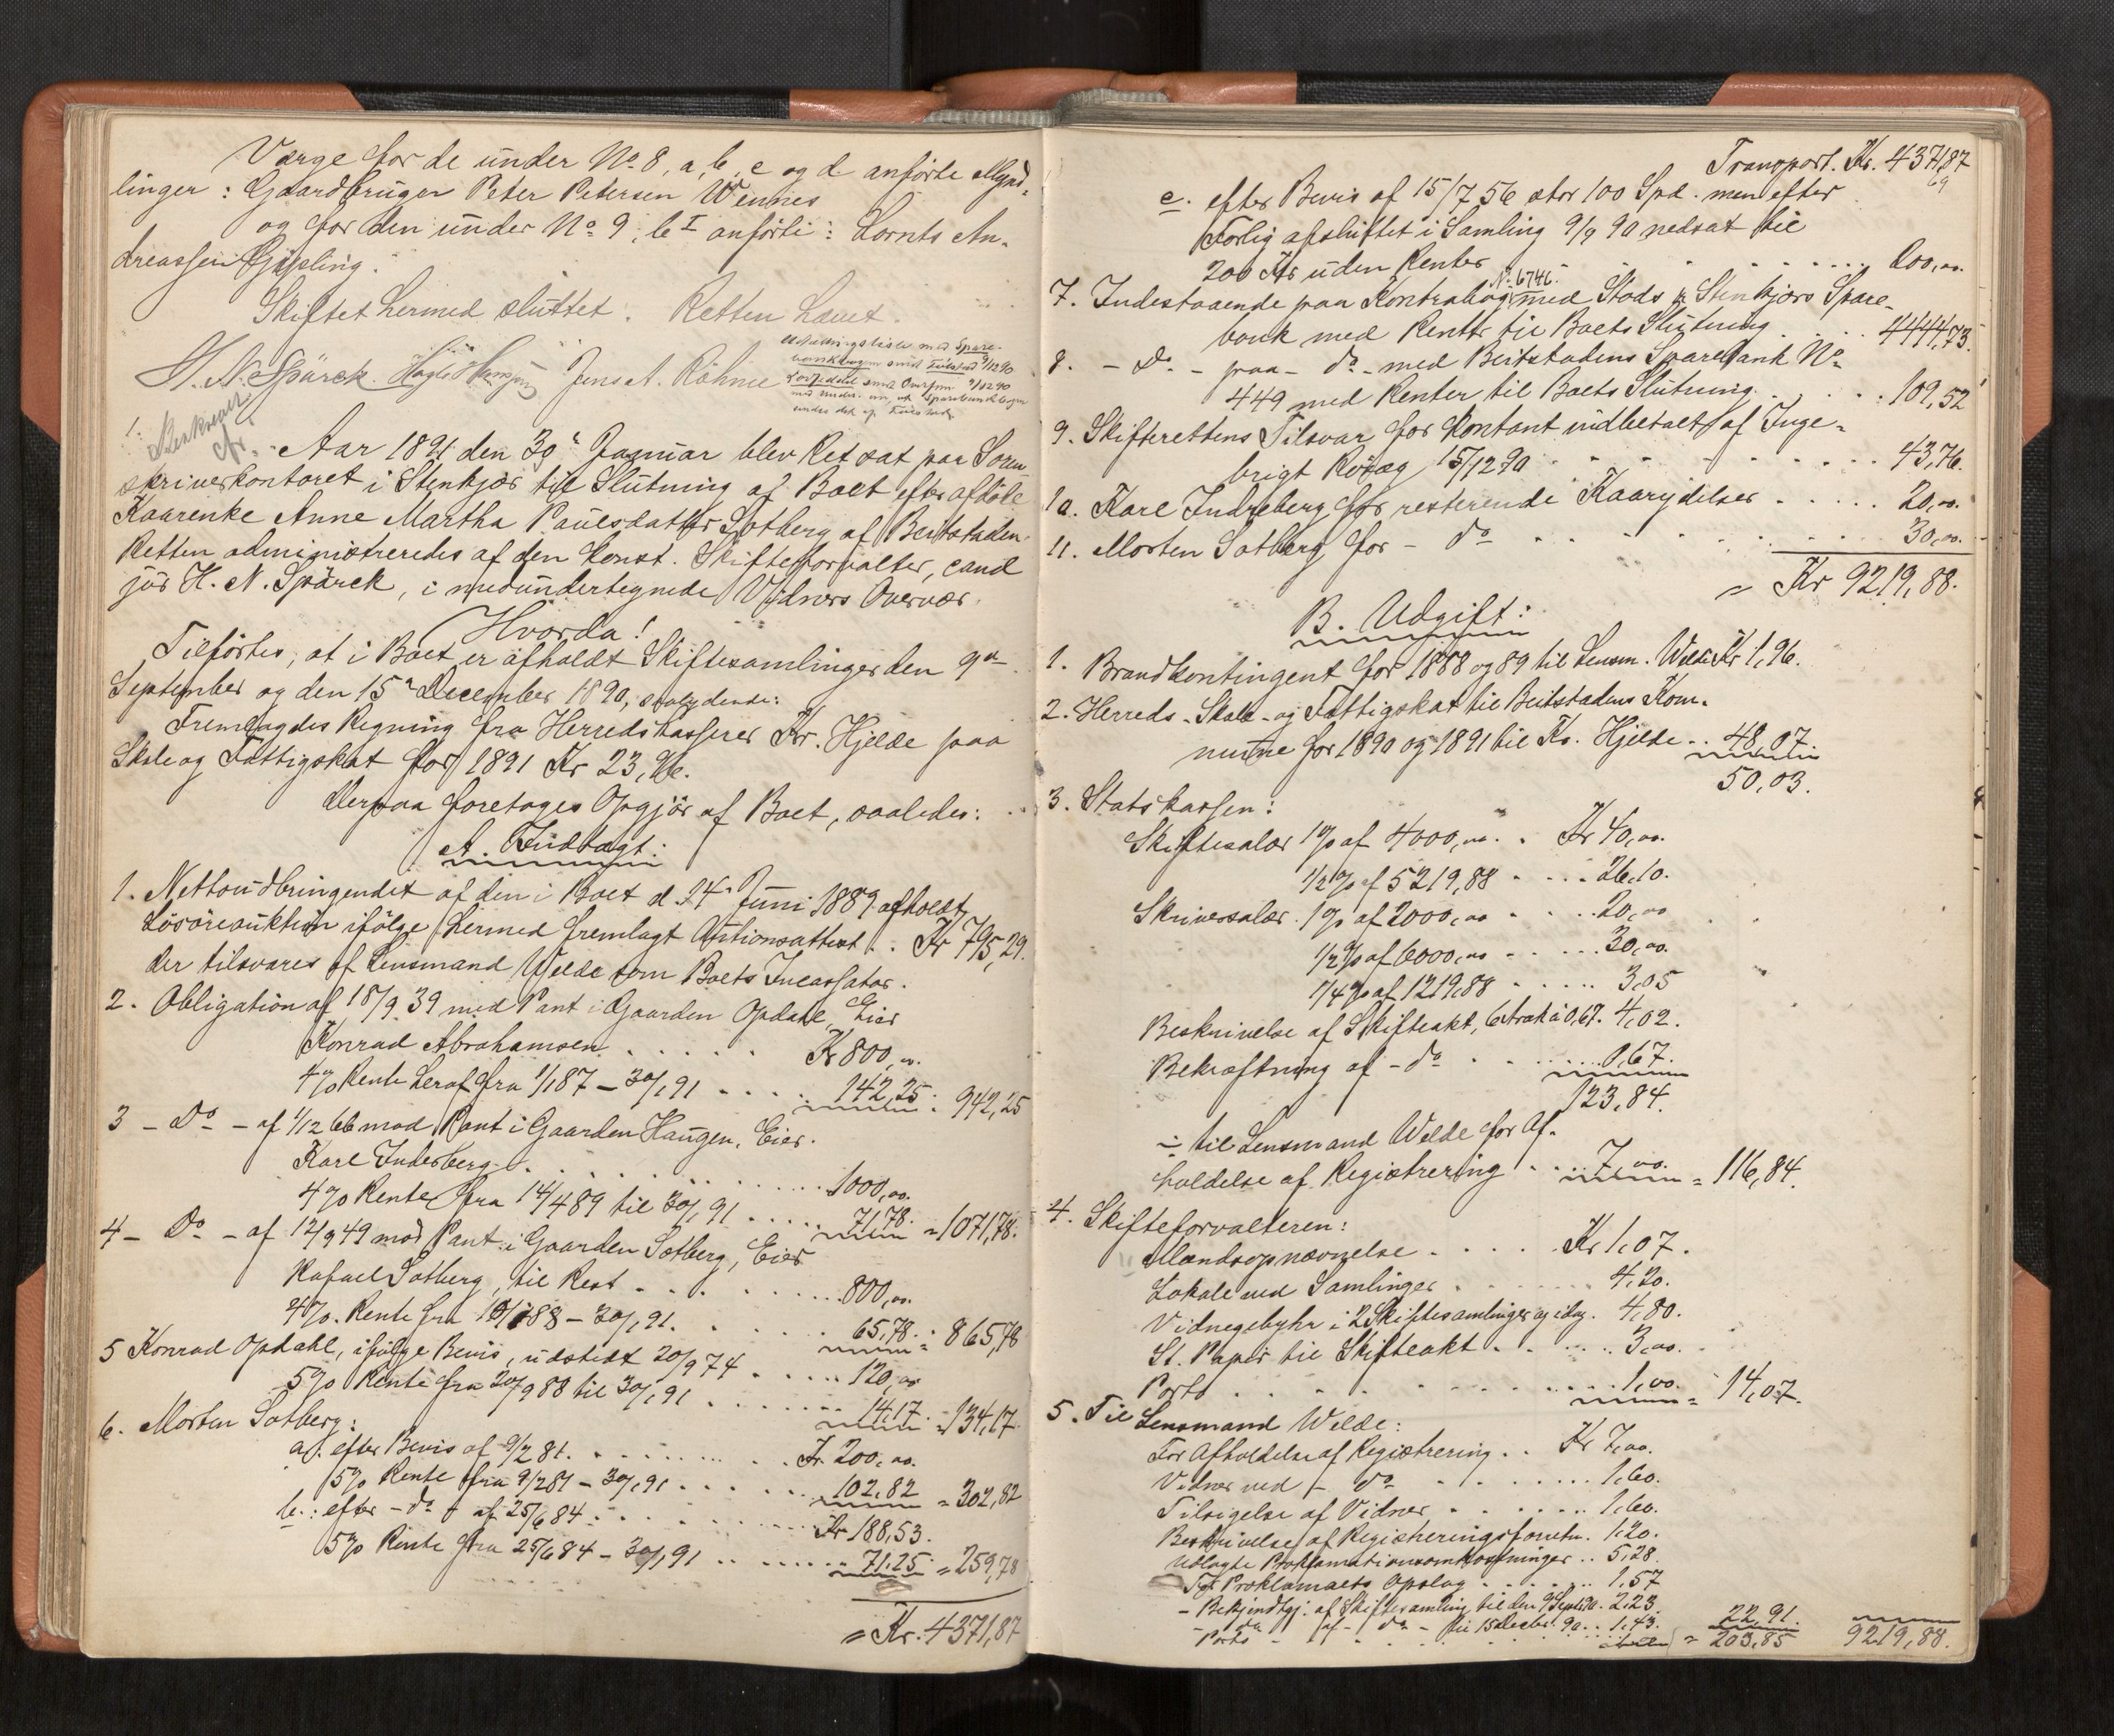 Værge for de under No 8, a, b, c og d anførte Mynd-
linger: Gaardbruger Peter Petersen Wennes
og for den under No 9, b I anførte: Lornts An-
dreassen Gjæsling.
Skiftet hermed sluttet. Retten hævet.
H. N. Spärck. Jens A. Röhme
Aar 1891 den 30te Januar blev Ret sat paa Soren-
skriverkontoret i Stenkjær til Slutning af Boet efter afdøde
Kaarenke Anne Martha Paulsdatter Sotberg af Beitstaden.
Retten administreredes af den konst. Skifteforvalter, cand
jur H. N. Spärck, i medundertegnede Vidners Overvær.
Hvorda!
Tilførtes, at i Boet er afholdt Skiftesamlinger den 9de
September og den 15de December 1890, saalydende:
Fremlagdes Regning fra Herredskasserer Kr. Hjelde paa
Skole og Fattigskat for 1891 Kr 23,96.
Derpaa foretages Opgjör af Boet, saaledes:
A. Indtægt:
1. Nettoudbringendet af den i Boet d. 14de Juni 1889 afholdt
Løsøreauktion ifølge hermed fremlagt Auktionsattest . . Kr 795,29.
der tilsvares af Lensmand Welde som Boets Incassator.
2. Obligation af 18/9 39 med Pant i Gaarden Opdahl, Eier
Konrad Abrahamsen . . . . . . Kr 800,00.
4% Rente heraf fra 1/1 87 - 30/1 91 . . . . 142,25 = 942,25
3 - Do - af 1/12 66 med Pant i Gaarden Haugen, Eier.
Karl Inderberg . . . . . . . . . . 1000,00.
4% Rente fra 14/4 89 til 30/1 91 . . . . . 71,78. = 1071,78.
4 - Do - af 12/9 49 med Pant i Gaarden Sotberg, Eier
Rafael Sotberg, til Rest . . . . . . . . 800,00.
4% Rente fra 88 - 30/1 91. . . . . . 65,78. = 865,78
5 Konrad Opdahl, ifølge Bevis, udstedt 20/9 74 . . . . . 120,00
5% Rente fra 20/9 88 til 30/1 91 . . . . . . . 14,17. = 134,17.
6. Morten Sotberg:
a. efter Bevis af 9/2 81. . . . . . . . . . Kr 200,00.
5% Rente fra 9/2 81 - 30/1 91 . . . . . . 102,82 = 302,82
b. efter - do - af 25/6 84 . . . . . . . . . Kr 188,53.
5% Rente fra 25/6 84 - 30/1 91 . . . . . . . . 71.25 = 259,78
= Kr. 4371,87
Transport. Kr. 4371,87
c. efter Bevis af 15/7 56 stor 100 Spd. men efter
Forlig afsluttet i Samling 9/9 90 nedsat til
200 Kr uden Renter . . . . . . . . . 200,00.
No 6746.
7. Indestaaende paa Kontrabog med Stods & Stenkjærs Spare-
bank med Renter til Boets Slutning . . . . 4444,73.
8. - Do - paa - do - med Beitstadens Sparebank No
449 med Renter til Boets Slutning . . . . . 109,52
9. Skifterettens Tilsvar for Kontant indbetalt af Inge-
brigt 15/12 90 . . . . . . . . . . 43,76.
10. Karl Inderberg for resterende Kaarydelser . . . . . 20,00.
11. Morten Sotberg for - do . . . . . . . . . 30,00.
= Kr 9219,88.
B. Udgift:
1. Brandkontingent for 1888 og 89 til Lensm. Welde Kr 1,96.
2. Herreds-Skole- og Fattigskat til Beitstadens Kom-
mune for 1890 og 1891 til Kr. Hjelde . . 48,07.
50,03.
3. Statskassen:
Skiftesalær 1% af 4000,00. . Kr 40,00.
1/2% af 5219,88 . . . . 26,10.
Skriversalær. 1% af 2000,00 . . . . 20,00
1/2% af 6000,00 . . . . . 30,00.
1/4% af 1219,88 . . . . . 3,05
Beskrivelse af Skifteakt, 6 Ark à 0,67. 4,02.
Bekræftning af - do . . . . . . . 0,67.
123,84.
÷ til Lensmand Welde for Af-
holdelse af Registrering . . . . 7,00. = 116,84.
4. Skifteforvalteren:
Mandsopnævnelse . . . . . Kr 1,07.
Lokale ved Samlinger . . . . . . 4,20.
Vidnegebyhr i 2 Skiftesamlinger og idag. 4,80.
St. Papir til Skifteakt . . . . . . 3,00.
Porto . . . . . . . . . . . 1,00. = 14,07.
5. Til Lensmand Welde:
For Afholdelse af Registrering . . Kr 7,00.
Vidner ved - do . . . . . . . 1,60.
Tilsigelse af Vidner . . . . . . 1,60.
Beskrivelse af Registreringsforretn. 1,20.
Udlagte Proklamationsomkostninger . . 5,28.
For Proklamaets Opslag . . . . . . 1,57
- Bekjendtgj. af Skiftesamling til den 9 Septb 90. 2,23.
- do af - do - til 15 Decbr. 90 . . 1,43.
Porto - . . . . . . . . . 22,91.
= 203,85 9219,88.